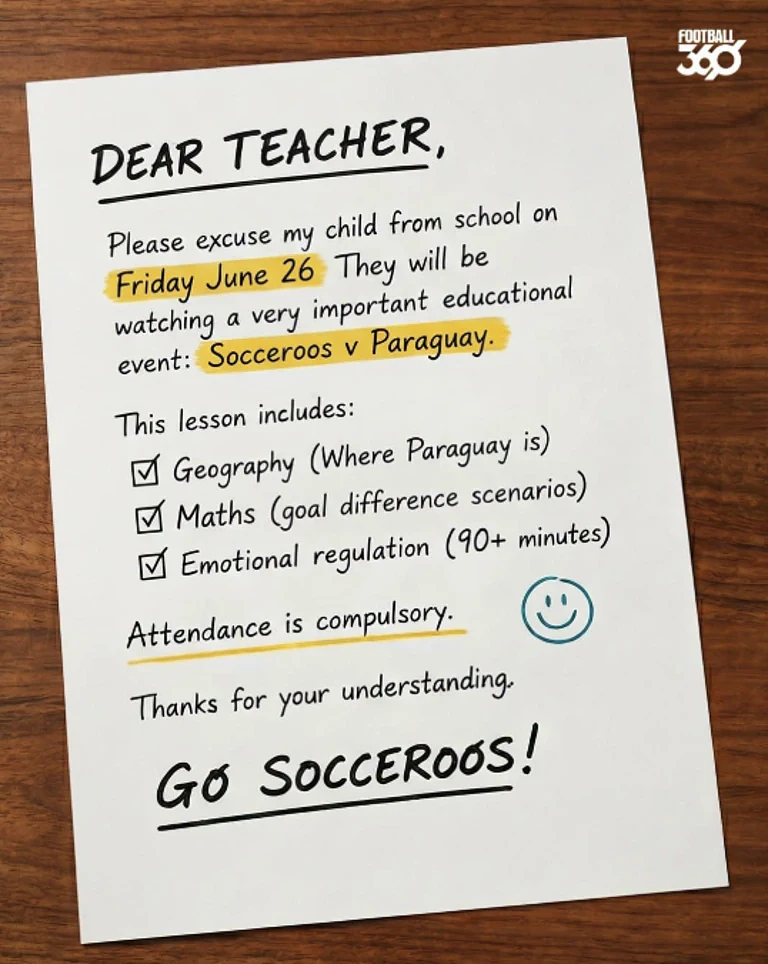 FOOTBALL
360
DEAR TEACHER,
Please excuse my child from school on
Friday June 26 They will be
watching a very important educational
event: Socceroos v Paraguay.
This lesson includes:
☑ Geography (Where Paraguay is)
☑ Maths (goal difference scenarios)
☑ Emotional regulation (90+ minutes)
Attendance is compulsory.
Thanks for your understanding.
GO SOCCEROOS!